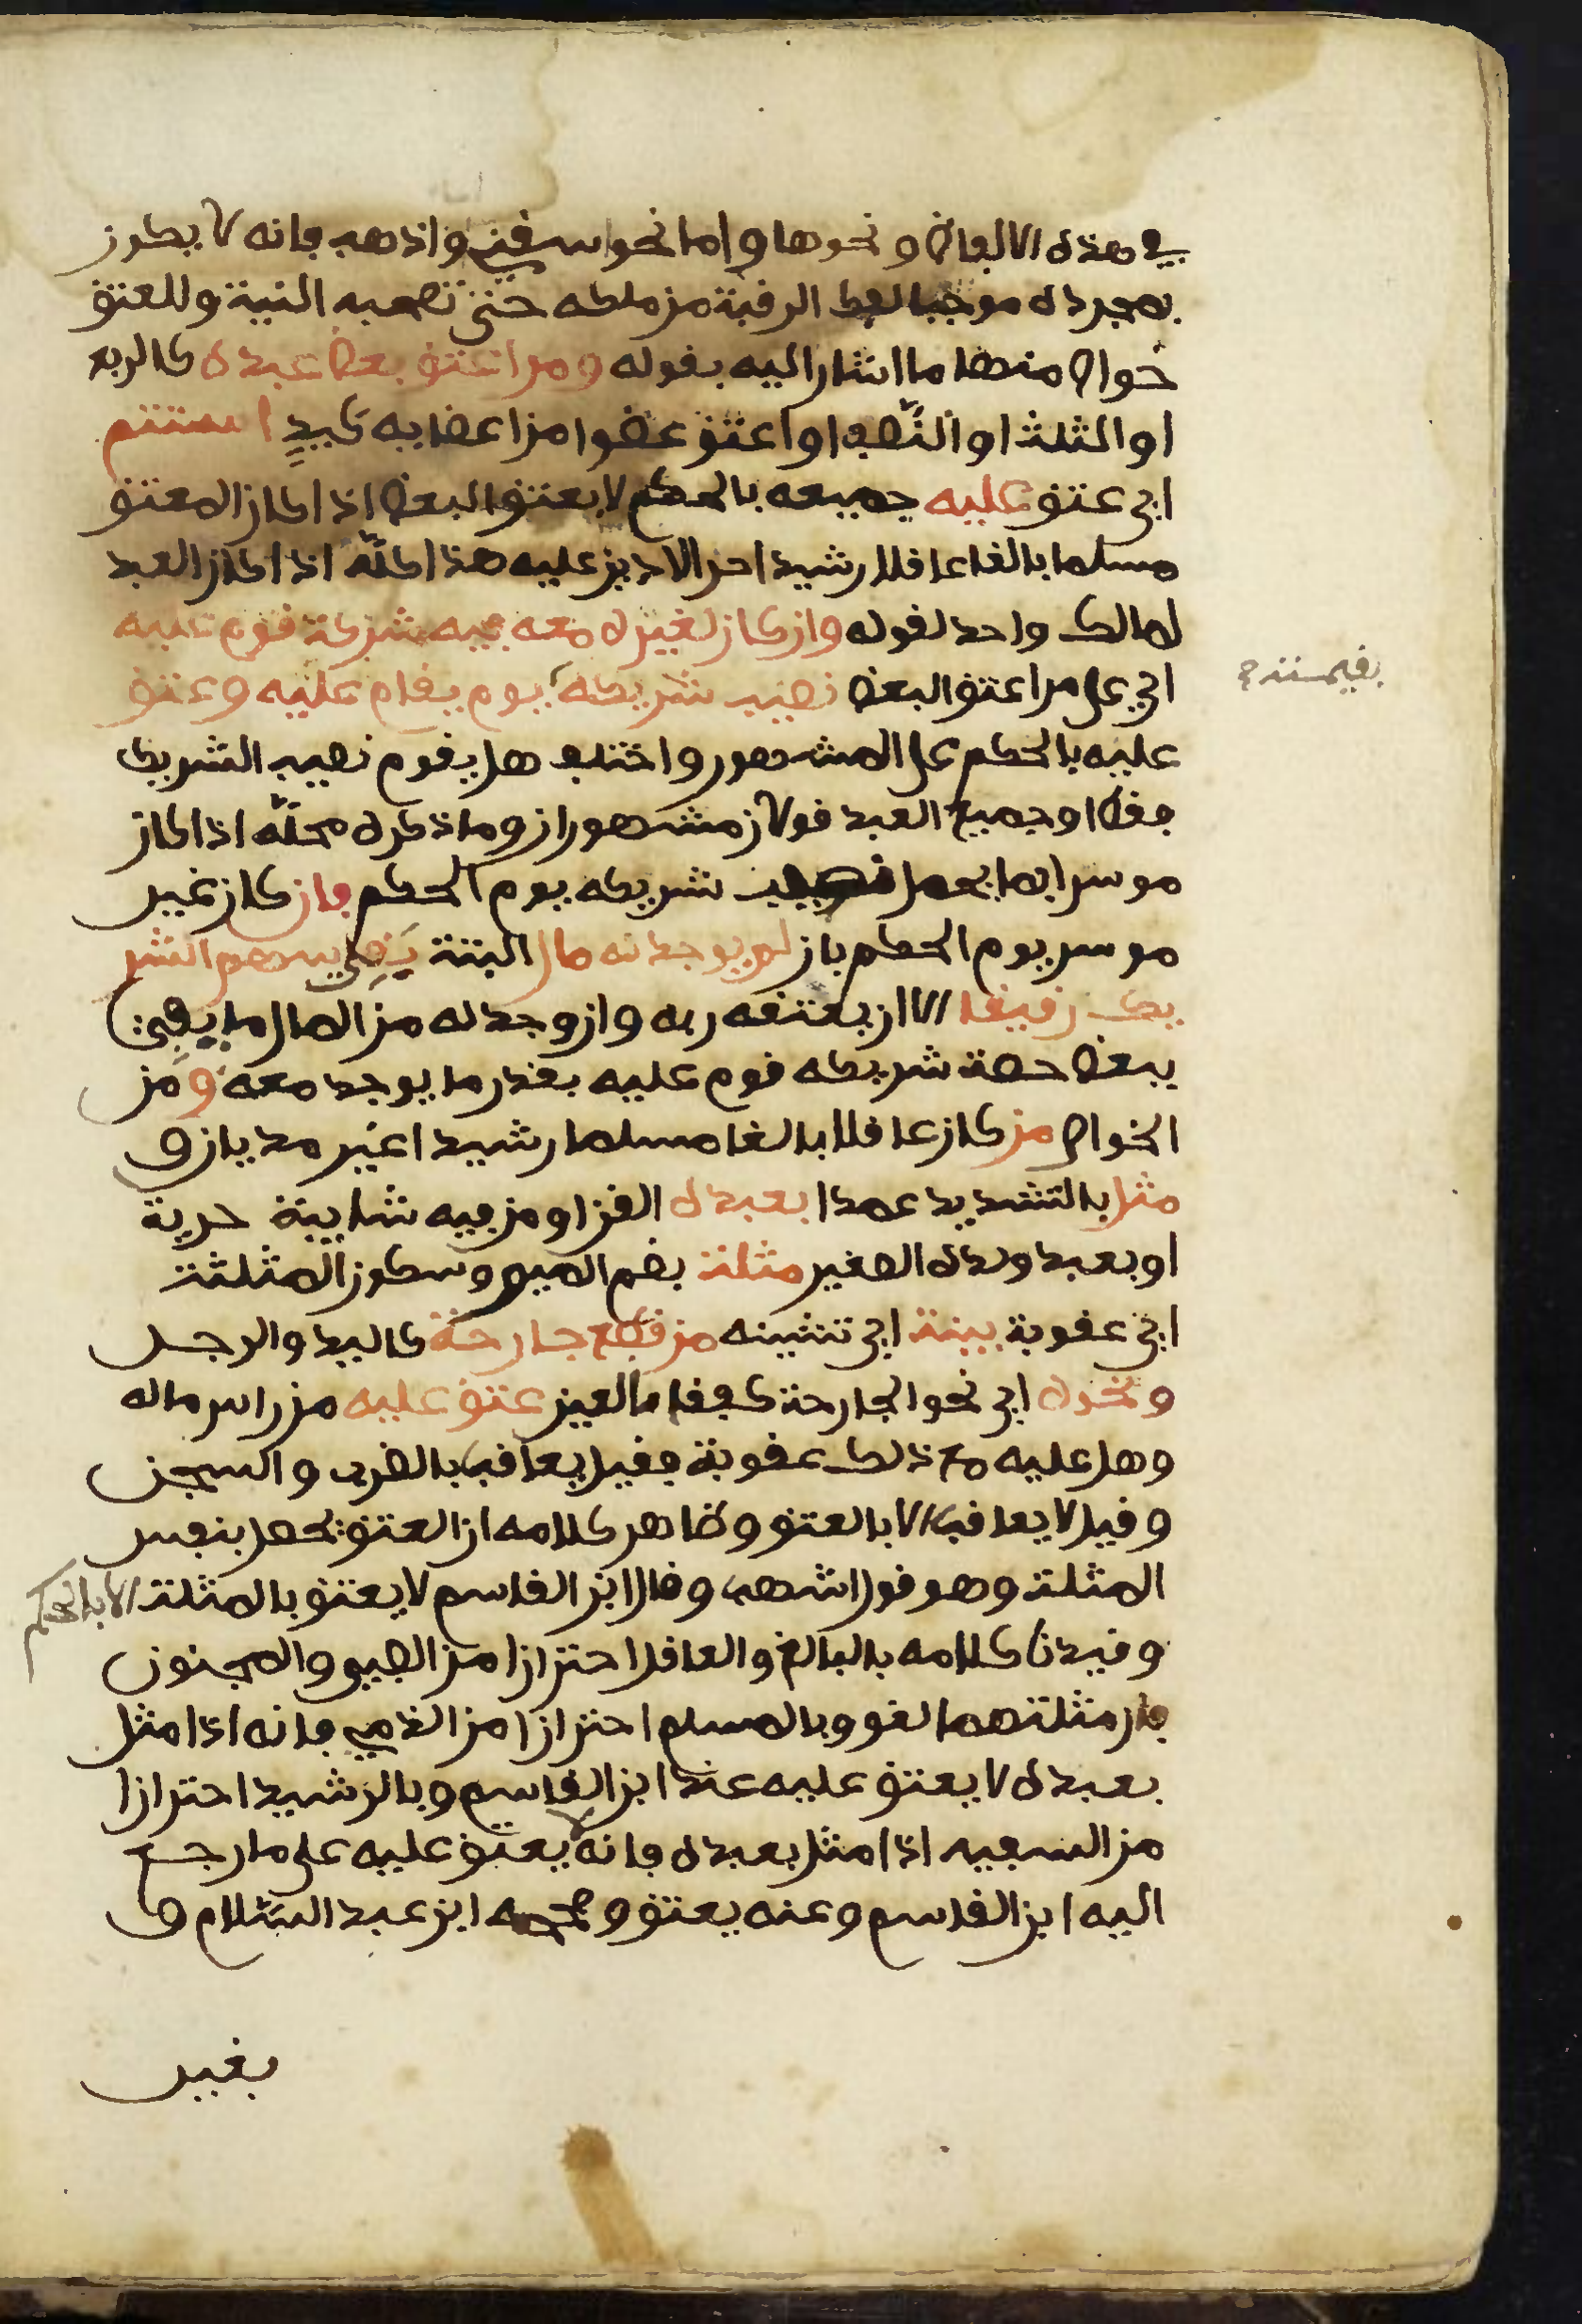 في هذه الالفاظ ونحوها واما نحو اسقني واذهب فانه لا يكون
بمجرده موجبا لفك الرقبة من ملكه حتى تصحبه النية وللعتق
خواص منها ما اشار اليه بقوله ومن اعتق بعض عبده كالربع
او الثلث او النّصف او اعتق عضوا من اعضايه كيدٍ استتم
اي عتق عليه جميعه بالحكم لا بعتق البعض اذا كان المعتق
مسلما بالغا عاقلا رشيدا حرا لا دين عليه هذا كلّه اذا كان العبد
لمالك واحد لقوله وان كان لغيره معه فيه شركة قوم عليه
اي على من اعتق البعض نصيب شريكه يوم يقام عليه وعتق
عليه بالحكم على المشهور واختلف هل يقوم نصيب الشريك
فقط او جميع العبد قولان مشهوران وما ذكره محلّه اذا كان
موسرا بما يحمل نصيب شريكه يوم الحكم فان كان غير
موسر يوم الحكم بان لم يوجد له مال البتة بَقِيَ سهم الشر
يك رقيقا الا ان يعتقه ربه وان وجد له من المال ما يفي
ببعض حصة شريكه قوم عليه بقدر ما يوجد معه ومن
الخواص من كان عاقلا بالغا مسلما رشيدا غير مديان و
مثل بالتشديد عمدا بعبده القن او من فيه شايبة حرية
او بعبد ولده الصغير مثلة بضم الميم وسكون المثلثة
اي عقوبة بينة اي تشينه من قطع جارحة كاليد والرجل
ونحوه اي نحو الجارحة كفقا العين عتق عليه من راس ماله
وهل عليه مع ذلك عقوبة فقيل يعاقب بالضرب والسجن
وقيل لا يعاقب الا بالعتق وظاهر كلامه ان العتق يحصل بنفس
المثلة وهو قول اشهب وقال ابن القاسم لا يعتق بالمثلة الا بالحكم
وقيدنا كلامه بالبالغ والعاقل احترازا من الصبي والمجنون
فان مثلتهما لغو وبالمسلم احترازا من الذمي فانه اذا مثل
بعبده لا يعتق عليه عند ابن القاسم وبالرشيد احترازا
من السفيه اذا مثل بعبده فانه لا يعتق عليه على ما رجع
اليه ابن القاسم وعنه يعتق وصححه ابن عبد السّلام و
بغير